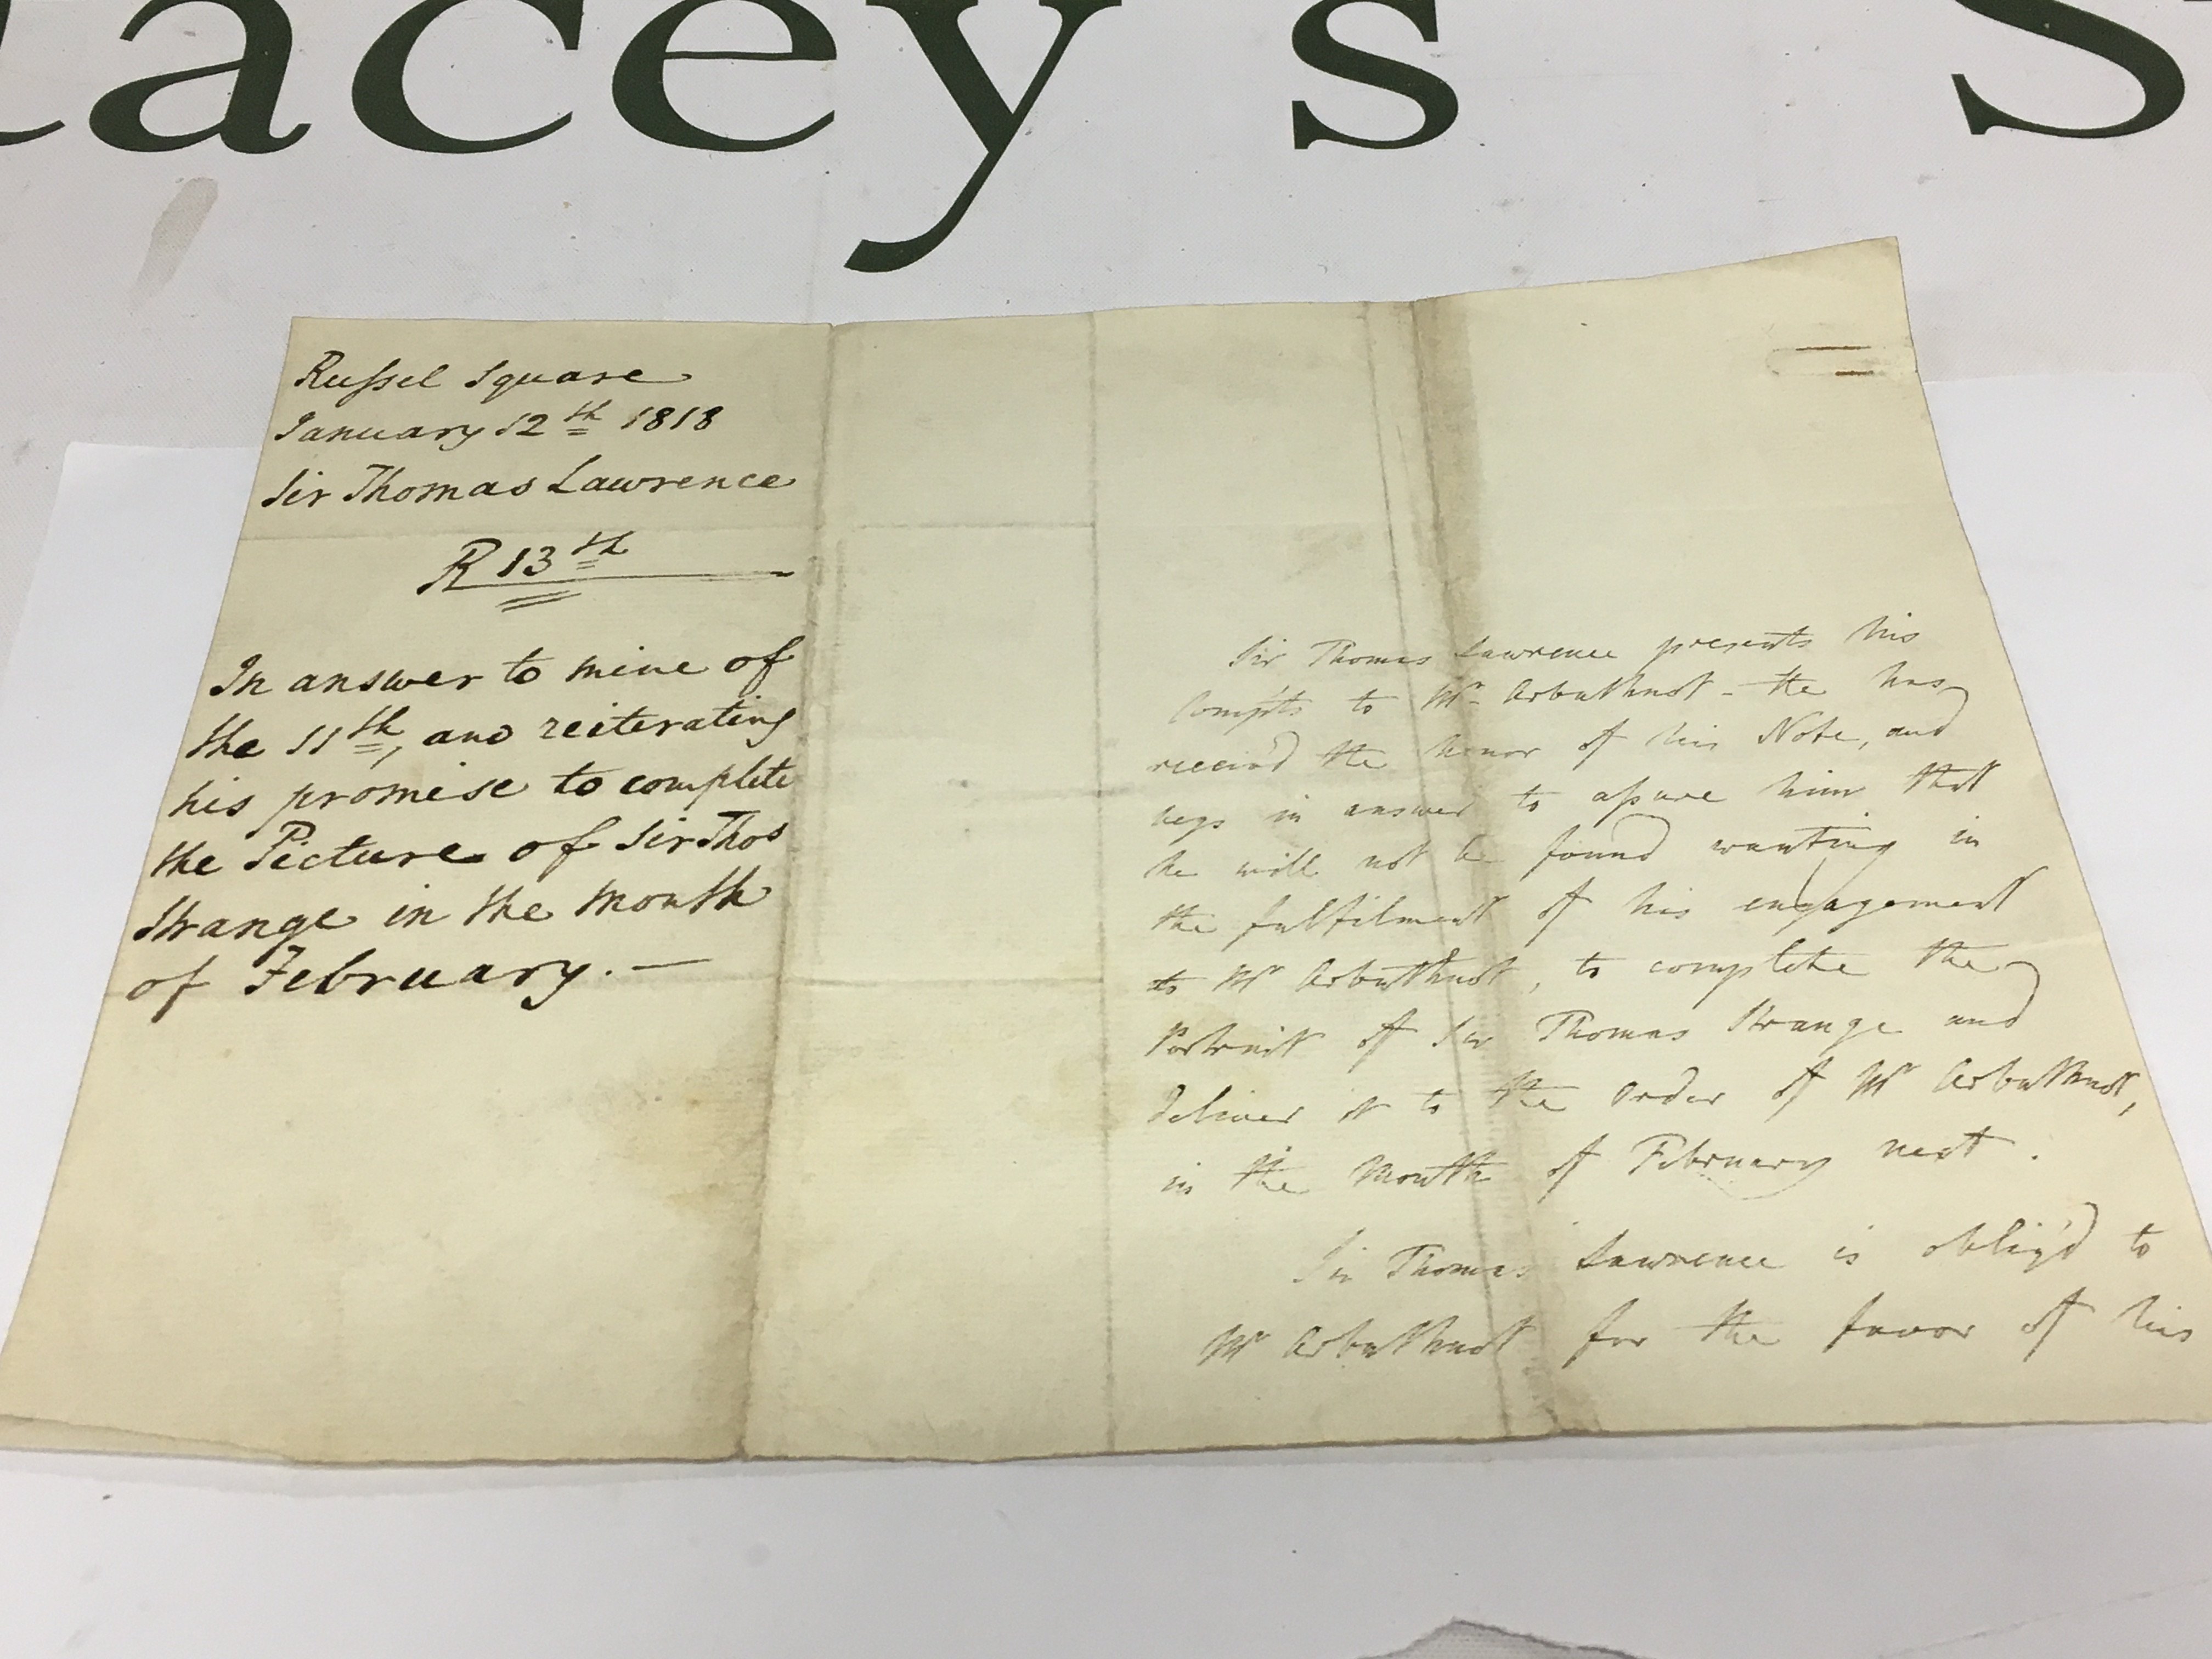 acey's S
Rufsel Square
January 12th 1818
Sir Thomas Lawrence
R 13th
In answer to mine of
the 11th, and reiterating
his promise to complete
the Picture of Sir Thos
Strange in the month
of February. —
Sir Thomas Lawrence presents his
Compts to Mr Arbuthnot - He has
receiv'd the honor of his Note, and
begs in answer to afsure him that
he will not be found wanting in
the fulfilment of his engagement
to Mr Arbuthnot, to complete the
Portrait of Sir Thomas Strange and
deliver it to the order of Mr Arbuthnot,
in the Month of February next.
Sir Thomas Lawrence is oblig'd to
Mr Arbuthnot for the favor of his